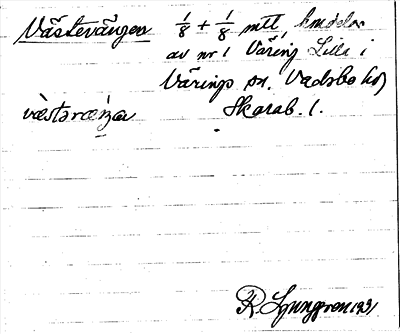 Västevången 1/8 + 1/8 mtl, hmdelar
av nr 1 Väring Lilla i
Värings sn. Vadsbo hd
Skarab. l.
R. Ljunggren 1931